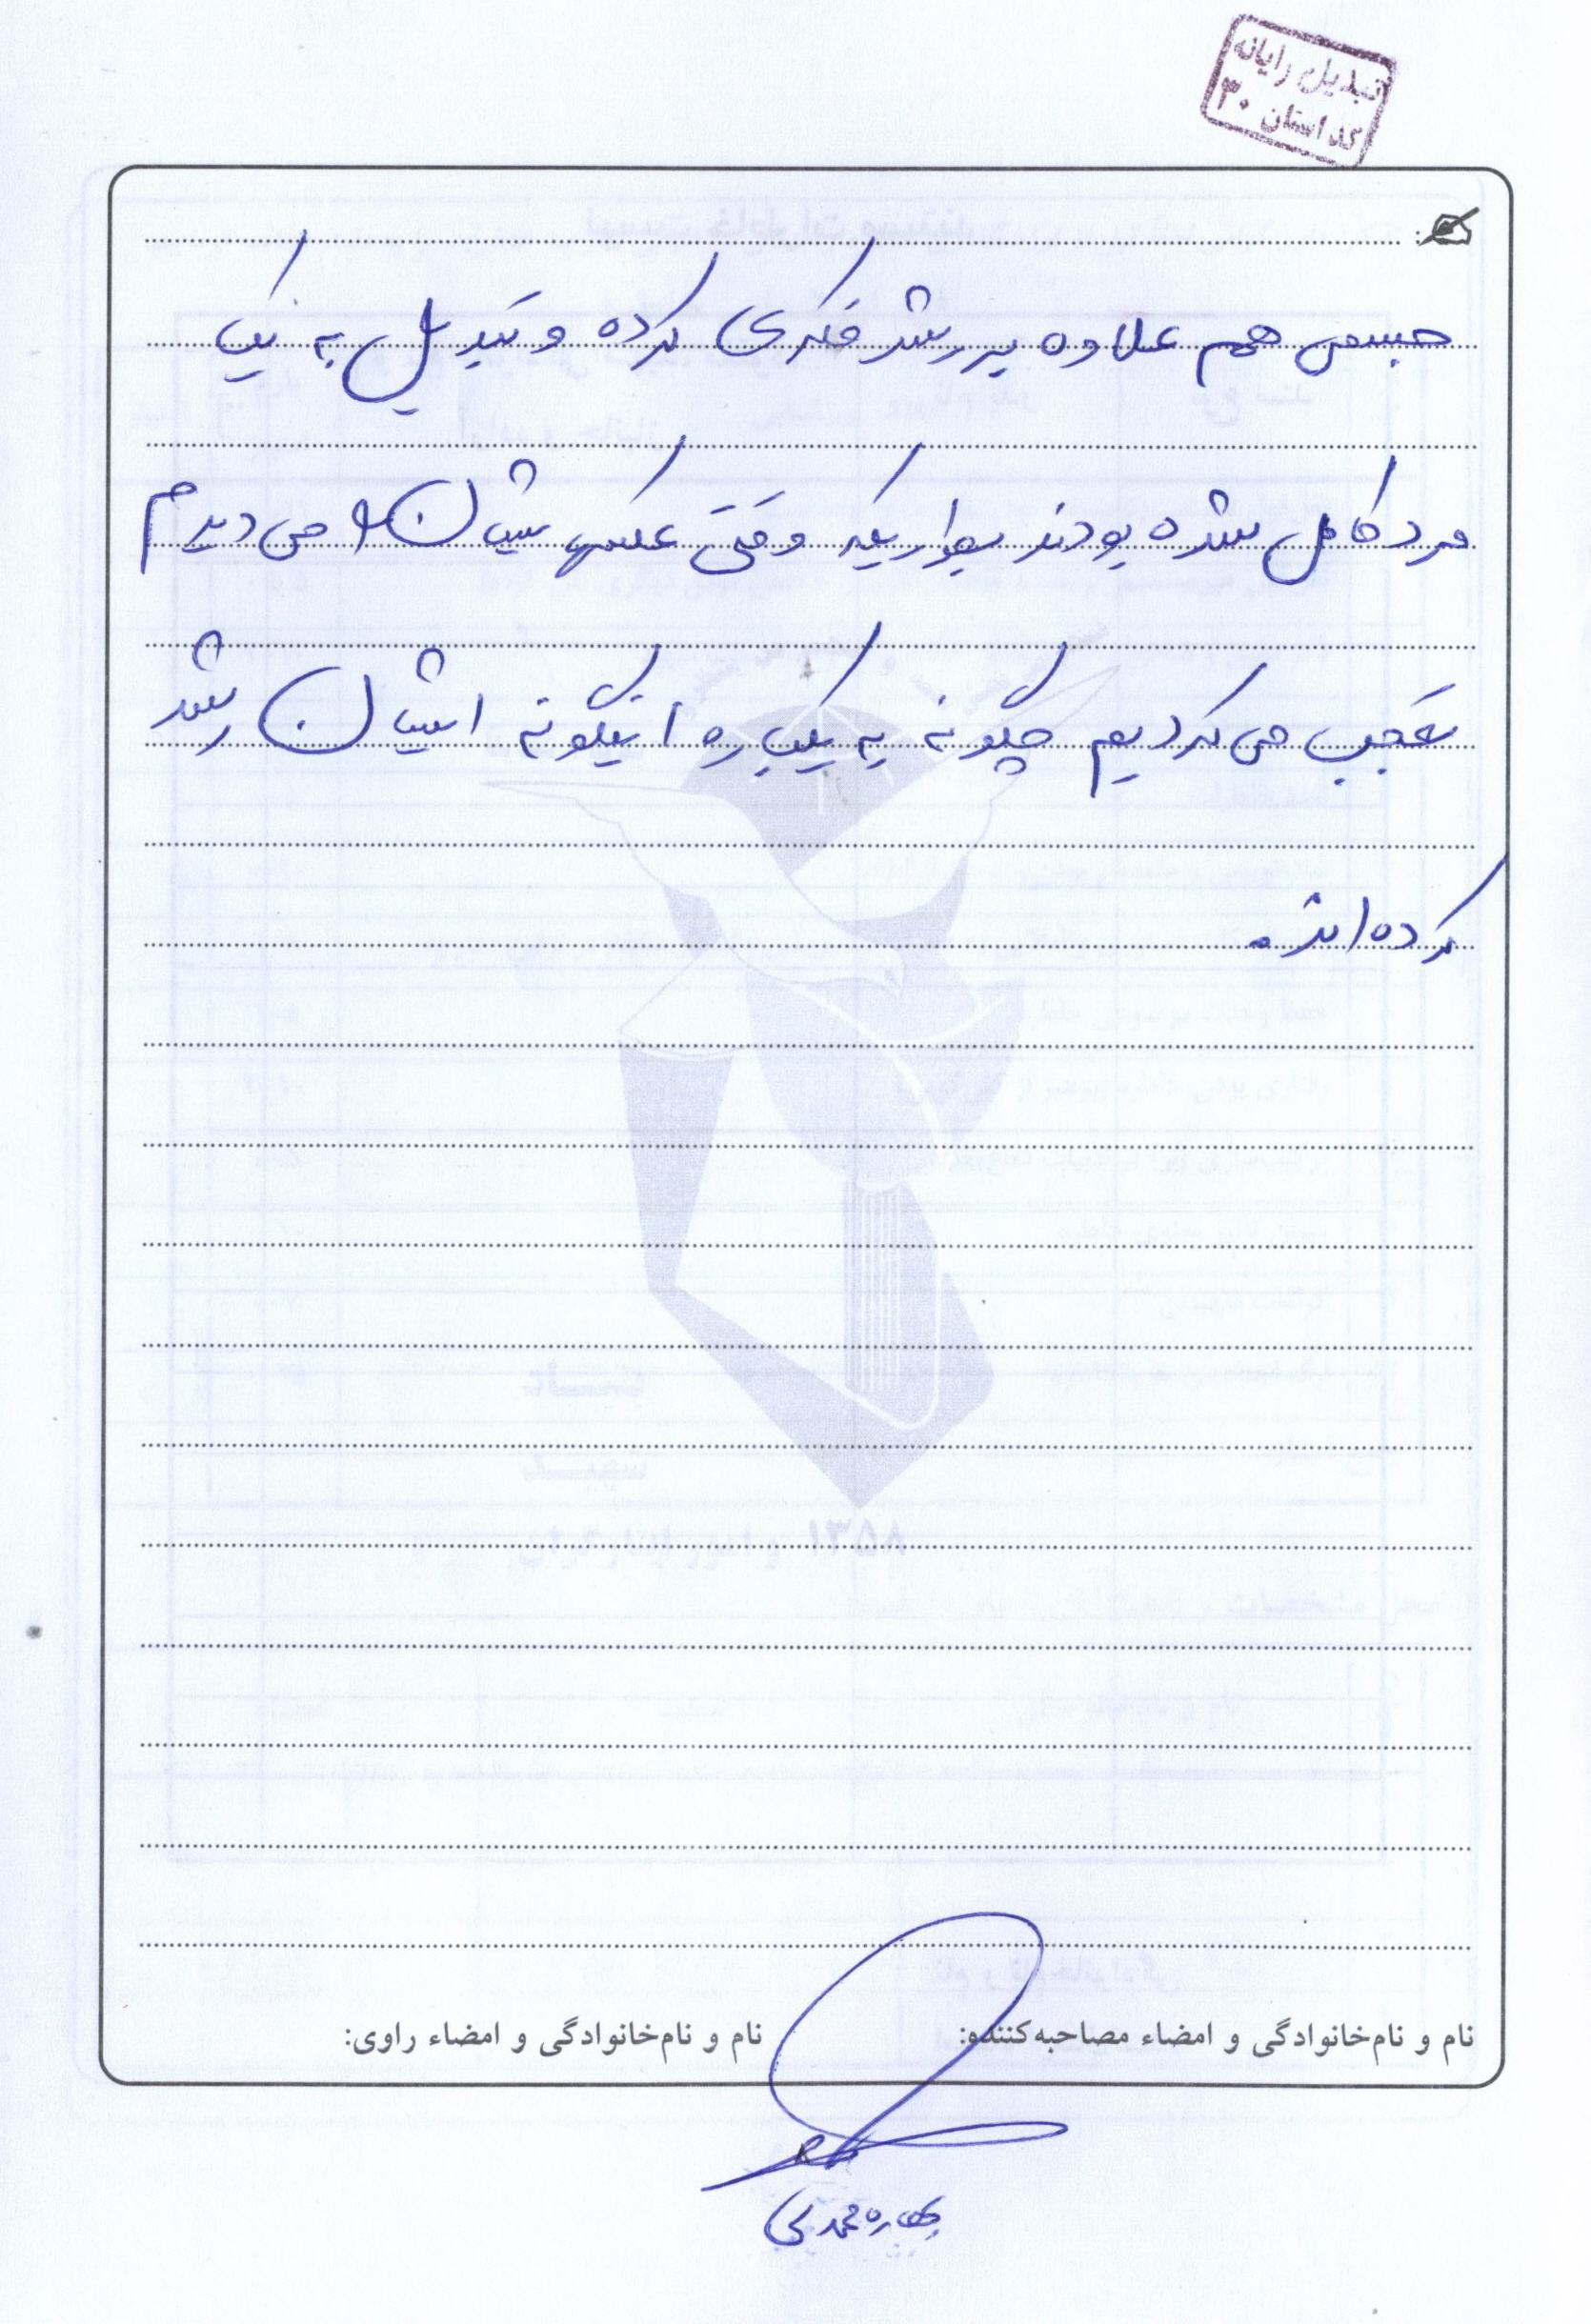 تبدیل رایانه
کد استان ۳۰
جسمی هم علاوه بر رشد فکری کرده و تبدیل به یک
مرد کامل شده بودند بطوریکه وقتی عکسهایشان را می دیدم
تعجب می کردیم چگونه به یکباره اینگونه ایشان رشد
کرده اند.
نام و نام‌خانوادگی و امضاء مصاحبه‌کننده:
نام و نام‌خانوادگی و امضاء راوی:
بهاره محمد
۱۳۵۸